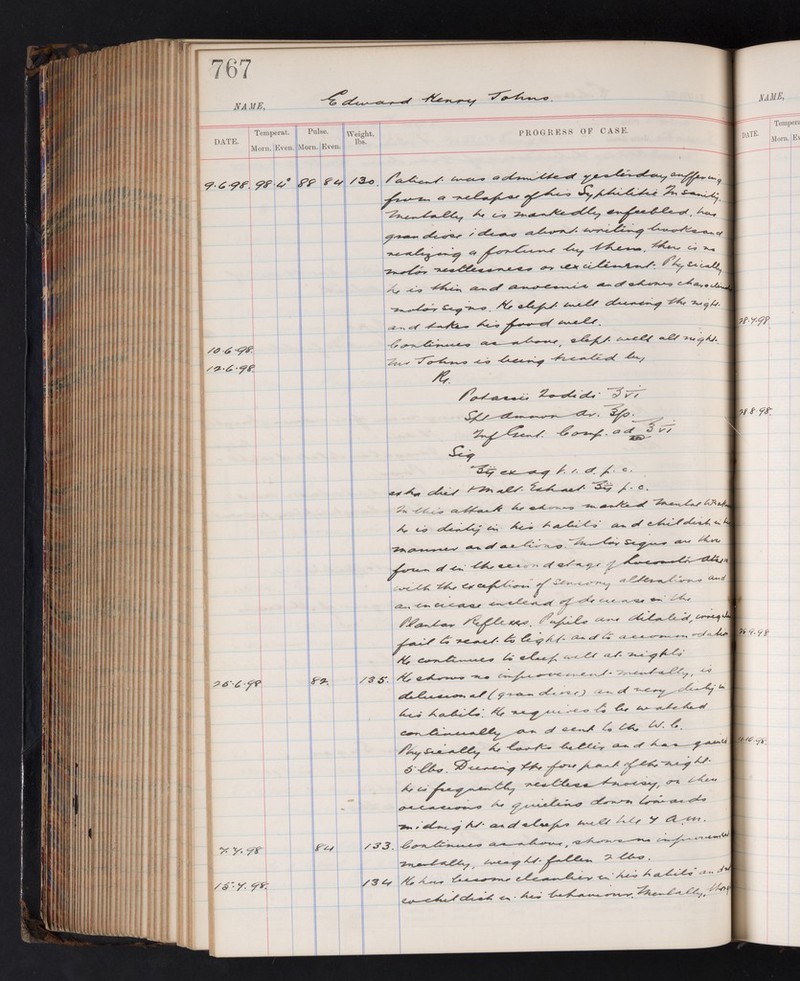 767
NAME, Edward Henry Johns.
DATE. Temperat. Morn. Even. Pulse. Morn. Even. Weight. lbs. PROGRESS OF CASE.
9.6.98. 98.4° 88 84 130. Patient was admitted yesterday suffering
from a relapse of his Syphilitic Insanity.
Mentally he is markedly enfeebled, has
grandiose ideas about writing books and
realizing a fortune by them. There is no
motor restlessness or excitement. Physically
he is thin and anoemic and shows
motor signs. He slept well during the night.
and takes his food well.
10.6.98 Continues as above, slept well all night.
12.6.98. Mr Johns is being treated by
Rx.
Potassii Iodidi ʒvi
Spt Ammon Ar. ʒfs.
Inf Gent. Comp. ad ʒvi
Sig
ex aq t.i.d. p.c.
extra diet & Malt Extract p.c.
In this attack he shows marked mental
he is dirty in his habits and childish in his
manner and actions. Motor signs are those
found in the second stage of Locomotor
with the exception of sensory alterations and
an increase instead of decrease in the
Plantar Reflexes. Pupils are dilated,
fail to react to light and to accommodation
He continues to sleep well at nights
25.6.98 82. 135. He shows no improvement mentally, is
delusional (grandiose) and very dirty in
his habits. He requires to be watched
continually and sent to the W.C.
Physically he looks better and has gained
5 lbs. During the fore part of the night
he is frequently restless & noisy, on other
occasions he quietens down towards
midnight and sleeps well till 4 a.m.
7.7.98 84 133. Continues as above, shows no improvement
mentally, weight fallen 2 lbs.
15.7.98. 134 He has become cleanlier in his habits and
so childish in his behaviour. Mentally,
NAME,
DATE. Temper
Morn.
28.7.98
28.8.98.
9.98
10.98.